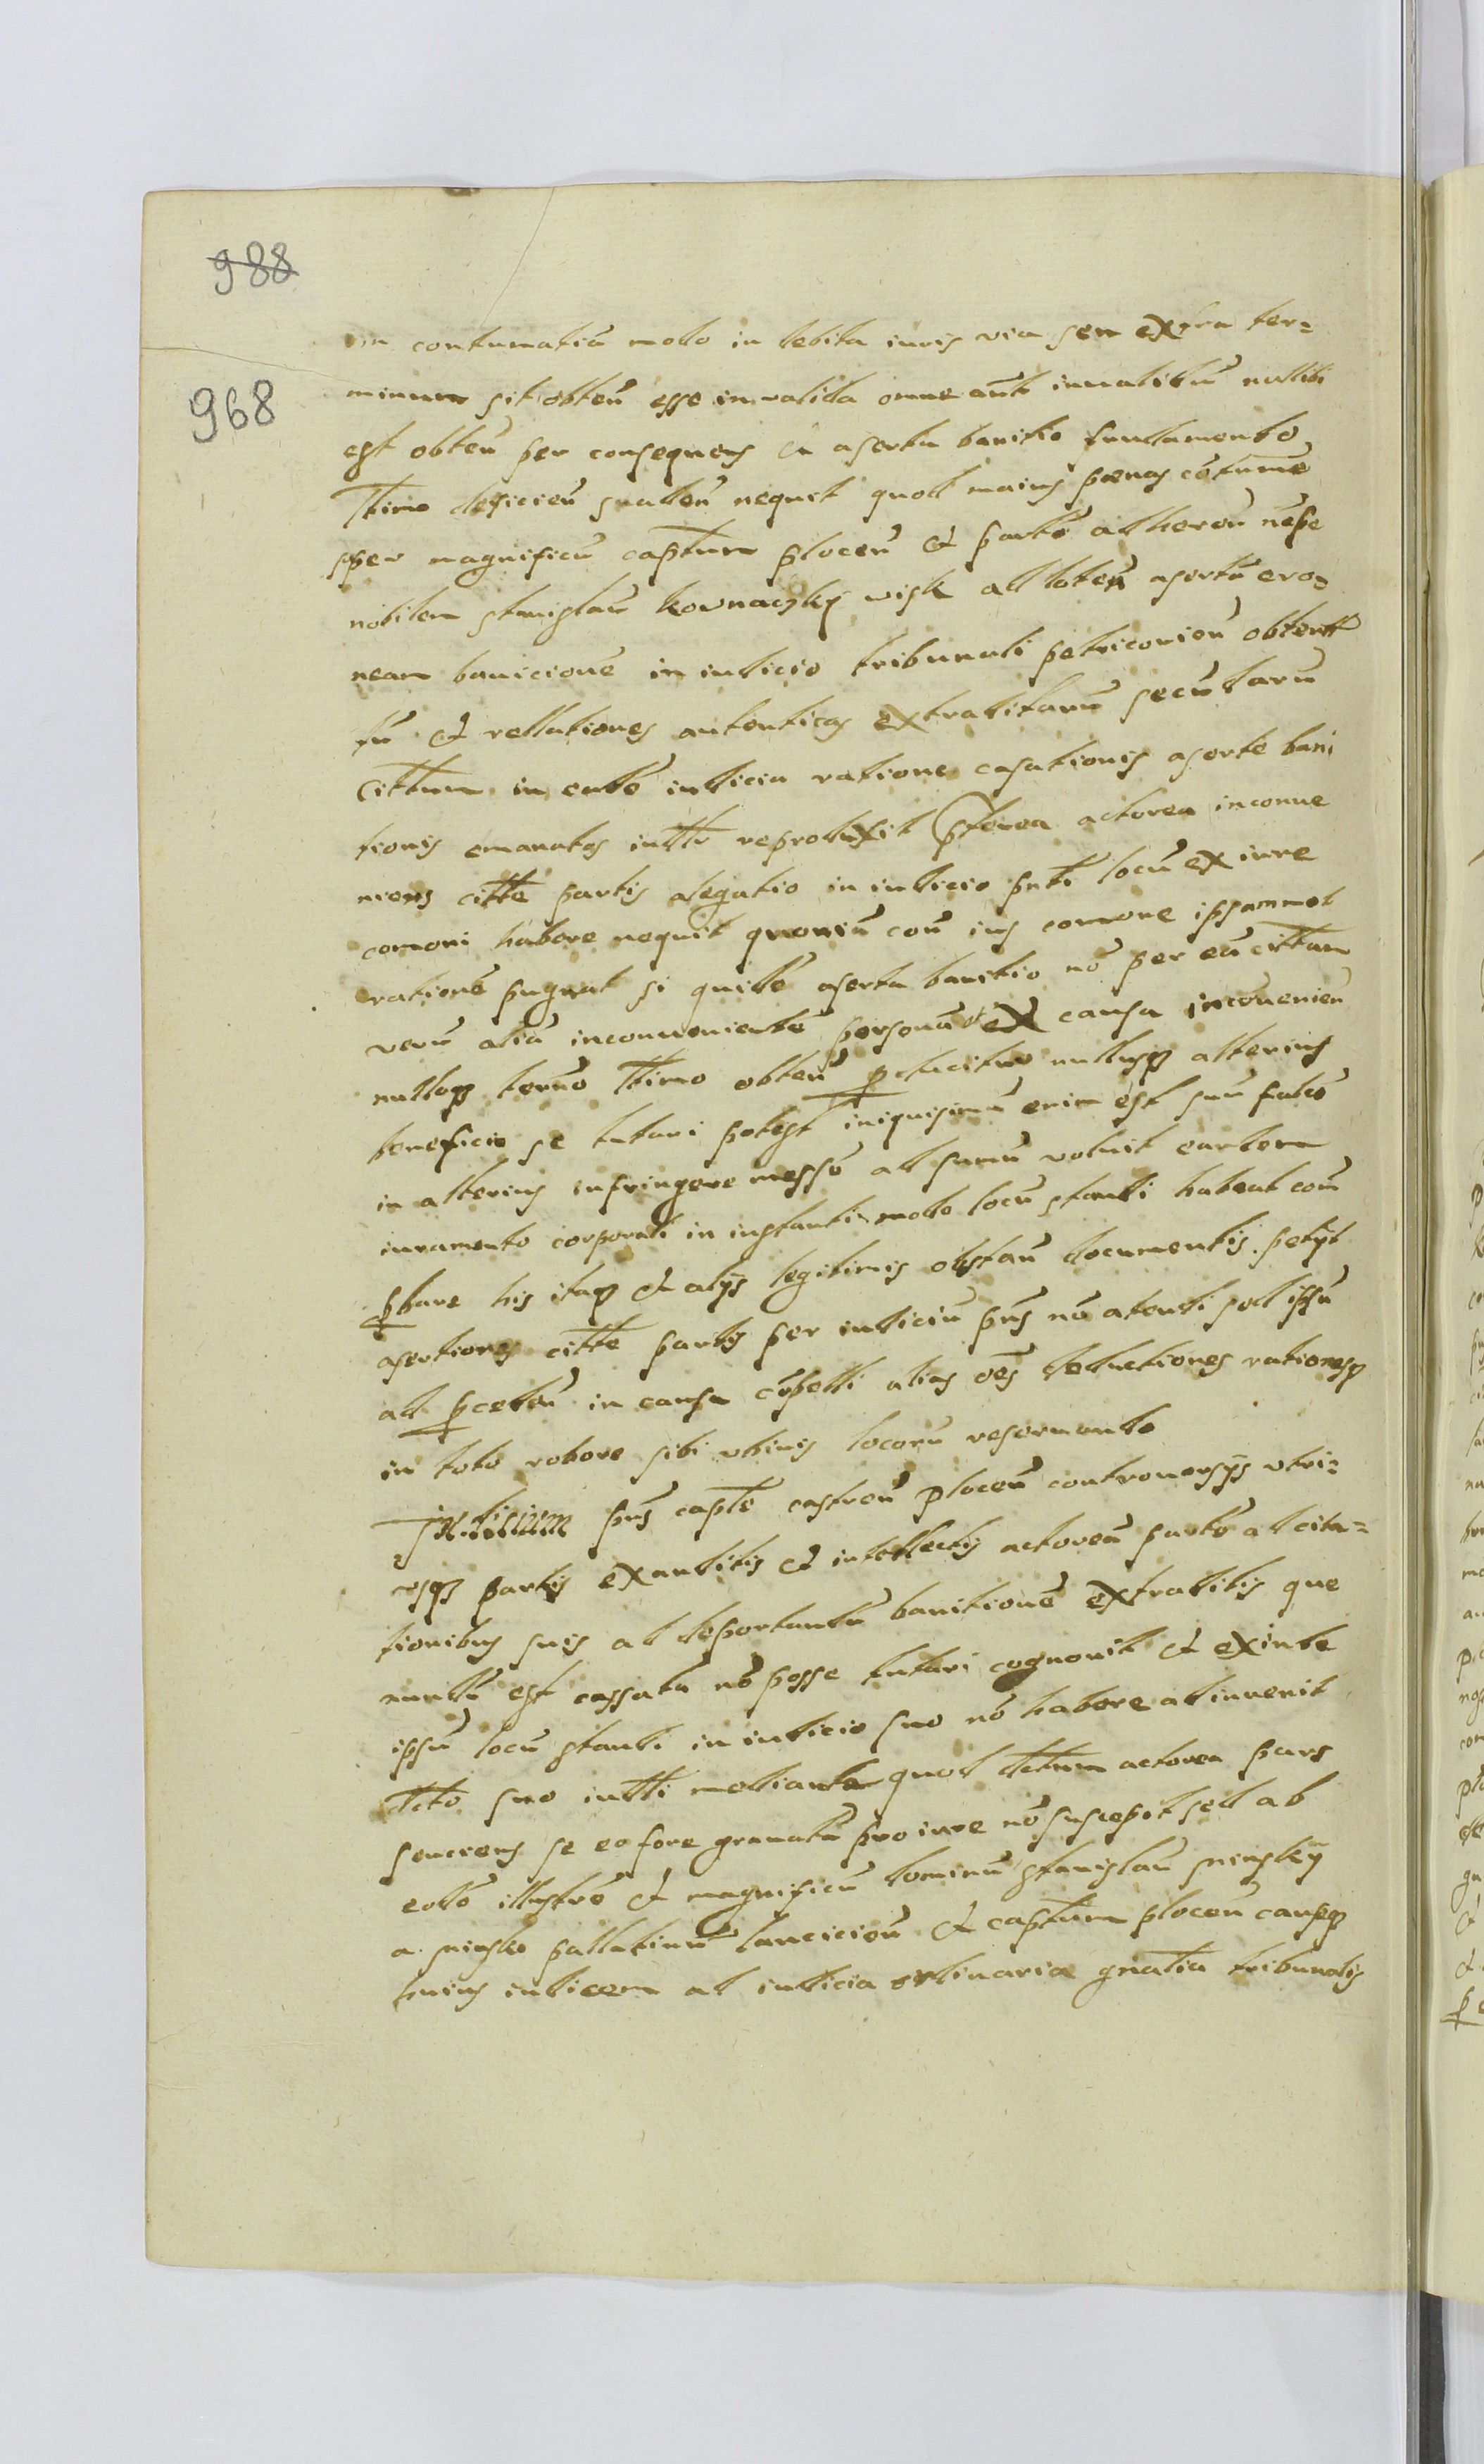 988
968
in contumatia modo in debita iuris via seu extra ter=
minum sit obten esse invalida omne aut inualidu nullibi
est obten per consequens et aserta banitio fundamento
ltimo deficien subten nequit quod maius penas cotume
per magnificu captum plocen et parte adheren nepe
nobilem stanislau kownaczky wisk ad doten asertu ero=
nean banicione in iudicio tribunali petricouien obten
tu et rellationes autenticas extraditaru secu daru
cittum in eade iudicia ratione casationis aserte bani
tionis emanatas iudtr reproduxit pterea actorea inconue
niens citte partis alegatio in iudicio pnti locu ex iure
comoni habere nequit quoniu con ius comone ipsammet
ratione pugnat si quide aserta banitio no per ea cittam
veru alia inconueniente persona et ex causa incouenien
nulloq termo ltimo obten pducitur nullusq alterius
beneficio se tutari potest iniquisimu enim est suu falce
in alterius infringere messe ad sumu voluit eardem
iuramento corporali in instanti modo locu standi habeat com
pbare his itaq et alijs legitimis obstan documentis petijt
asertiones citte partis per iudiciu pns no atendi sed ipsu
ad pceden in causa copelli alias oes deductiones rationesq
in toto robore sibi vbiuis locoru reseruando
Iudicium pns capte castren plocen controuersijs vtri=
usq partis exauditis et intellectis actorea parte ad cita=
tionibus suis ad deportanda banitione extraditis que
nundu est cassata no posse tutari cognouit et exinde
ipsu locu standi in iudicio suo no habere adinuenit
dcto suo iudtti mediante quod dctum actorea pars
senciens se eo fore grauatu pro iure no suscepit sed ab
eode illustre et magnificu dominu stanislau minsky
a minsko pallatinu lancicien et captum plocen causeq
huius iudicem ad iudicia ordinaria gnalia tribunalis